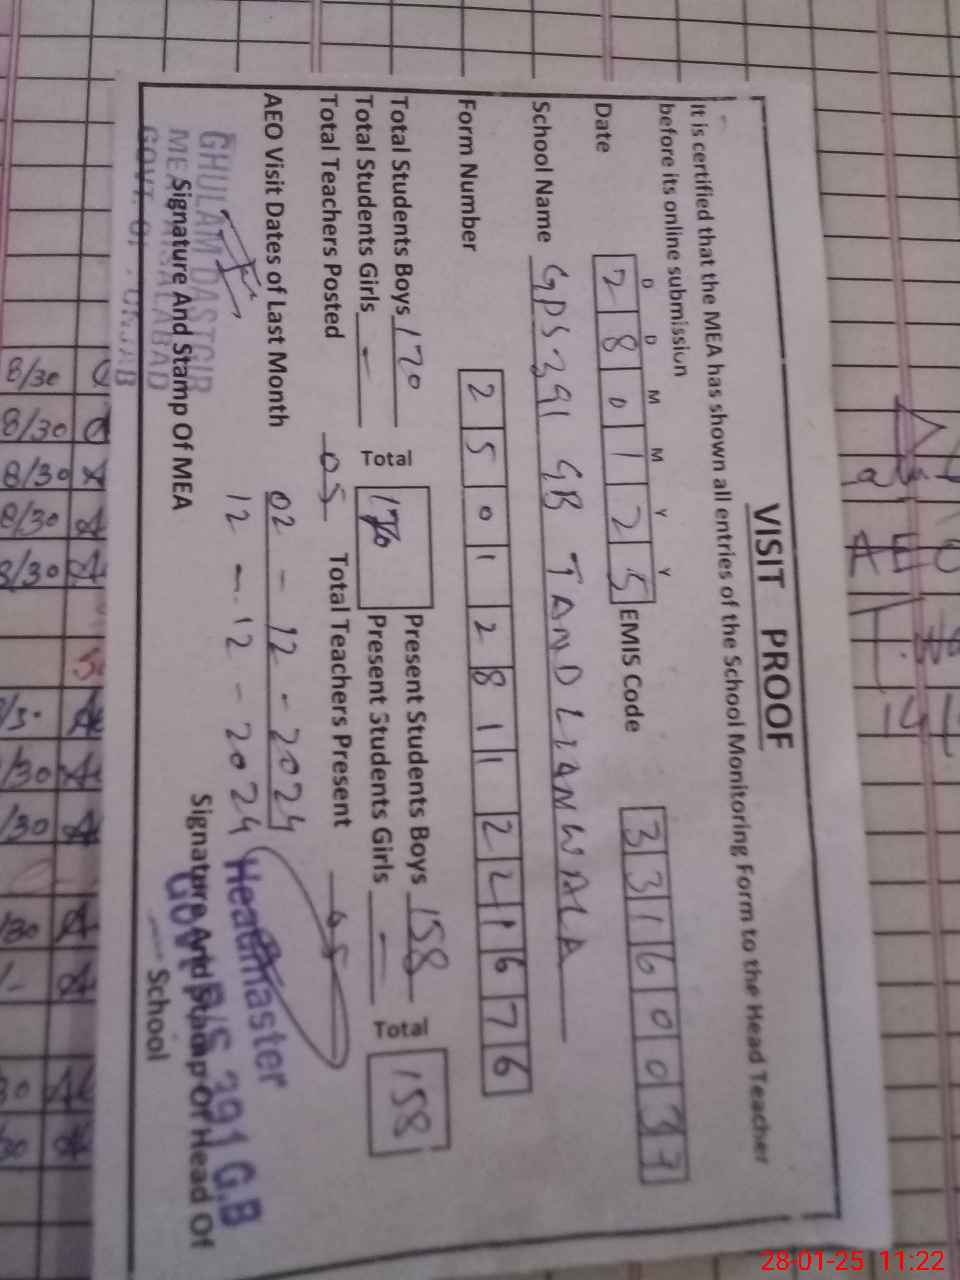 VISIT PROOF
It is certified that the MEA has shown all entries of the School Monitoring Form to the Head Teacher
before its online submission
D D M M Y Y
Date 2 8 0 1 2 5 EMIS Code 3 3 1 6 0 0 3 7
School Name GPS 391 GB TANDLIANWALA
Form Number 2 5 0 1 2 8 1 1 2 2 1 6 7 6
Total Students Boys 170 Total 170 Present Students Boys 158 Total 158
Total Students Girls - Present Students Girls -
Total Teachers Posted 05 Total Teachers Present 05
AEO Visit Dates of Last Month 02 - 12 - 2024
12 - 12 - 2024
GHULAM DASTGIR
MEA FAISALABAD
GOVT. OF PUNJAB
Signature And Stamp Of MEA
Headmaster
Govt P/S 391 G.B
Signature And Stamp Of Head Of
School
8/30
8/30
8/30
8/30
8/30
28-01-25 11:22